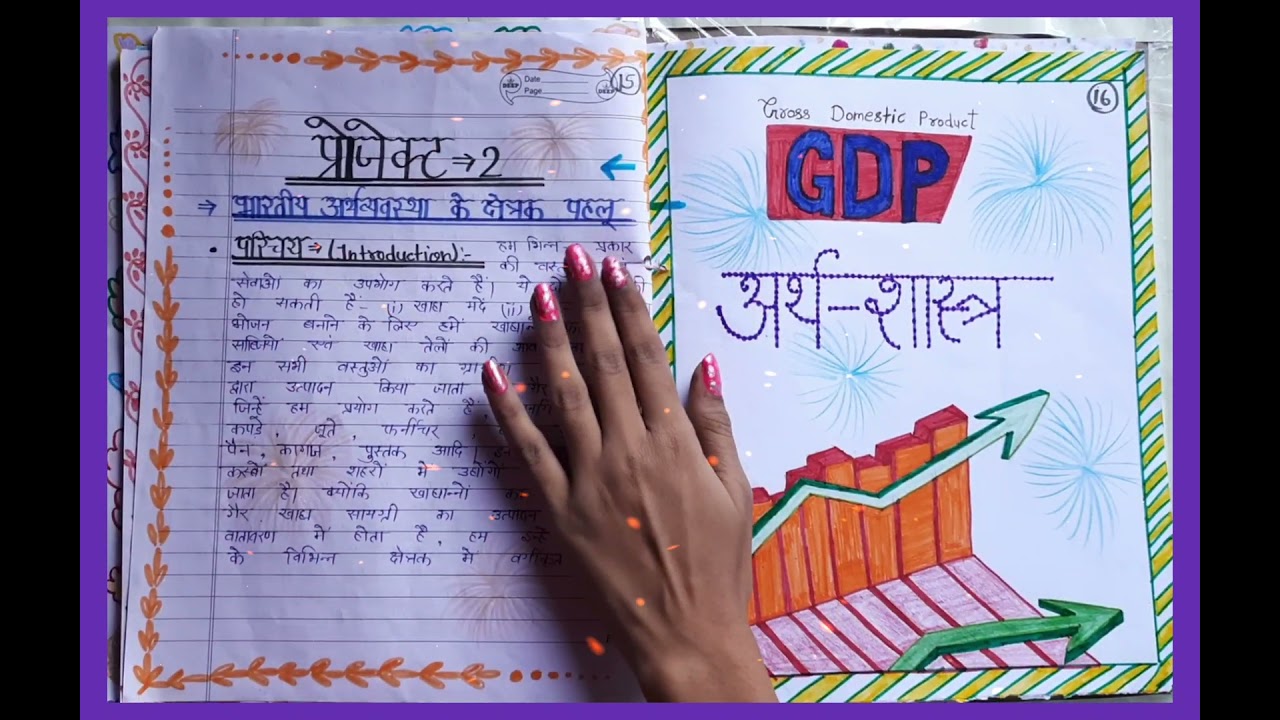 DEEP
Date
Page
DEEP
15
प्रोजेक्ट ⇒ 2
⇒ भारतीय अर्थव्यवस्था के क्षेत्रक पहलू
• परिचय ⇒ (Introduction) :- हम भिन्न प्रकार
की
सेवाओं का उपयोग करते हैं। ये
हो सकती हैं - (i) खाद्य मदें (ii)
भोजन बनाने के लिए हमें
सब्जियों एवं खाद्य तेलों की
इन सभी वस्तुओं का
द्वारा उत्पादन किया जाता
जिन्हें हम प्रयोग करते हैं,
कपड़े, जूते, फर्नीचर,
पैन, कागज, पुस्तक आदि।
कस्बों तथा शहरों में उद्योगों
जाता है। क्योंकि खाद्यान्नों का
गैर खाद्य सामग्री का उत्पादन
वातावरण में होता है, हम इन्हें
के विभिन्न क्षेत्रक में
16
Gross Domestic Product
GDP
अर्थ-शास्त्र